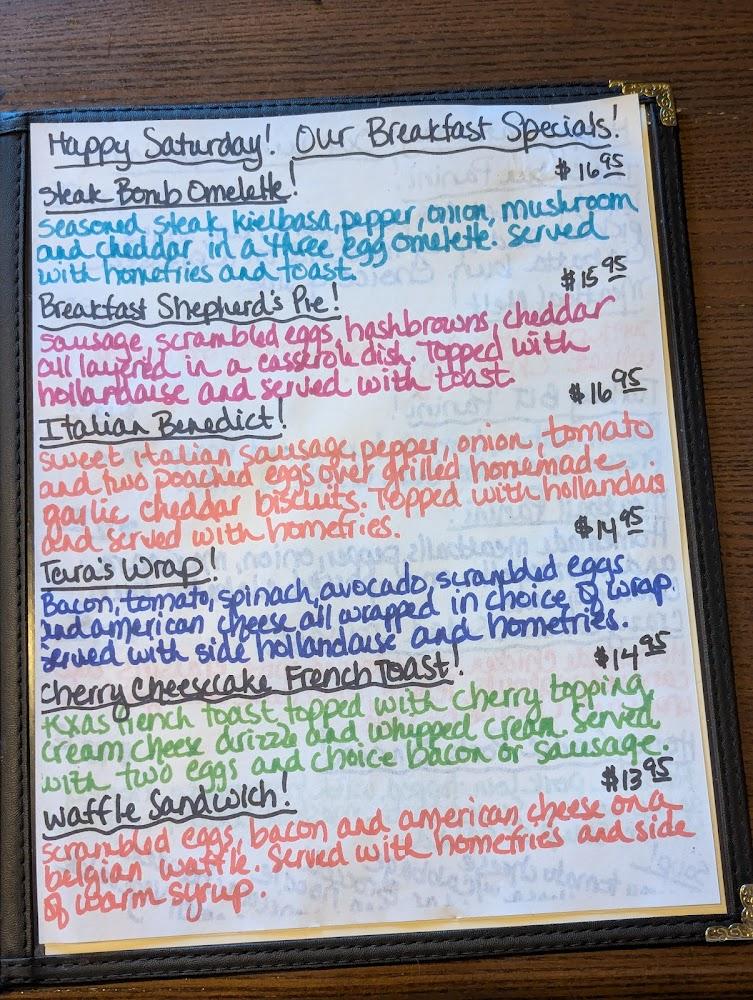 Happy Saturday! Our Breakfast Specials!
Steak Bomb Omelette! $16 95
Seasoned steak, kielbasa, pepper, onion, mushroom
and cheddar in a three egg omelette. Served
with homefries and toast.
Breakfast Shepherd's Pie! $15 95
Sausage, scrambled eggs, hashbrowns, cheddar
all layered in a casserole dish. Topped with
hollandaise and served with toast.
Italian Benedict! $16 95
Sweet italian sausage, pepper, onion, tomato
and two poached eggs over grilled homemade
garlic cheddar biscuits. Topped with hollandais
and served with homefries.
Teira's Wrap! $14 95
Bacon, tomato, spinach, avocado, scrambled eggs
and american cheese all wrapped in choice of wrap.
Served with side hollandaise and homefries.
Cherry Cheesecake French Toast! $14 95
texas french toast topped with cherry topping,
cream cheese drizzle and whipped cream. Served
with two eggs and choice bacon or sausage.
Waffle Sandwich! $13 95
scrambled eggs, bacon and american cheese on a
belgian waffle. Served with homefries and side
of warm syrup.